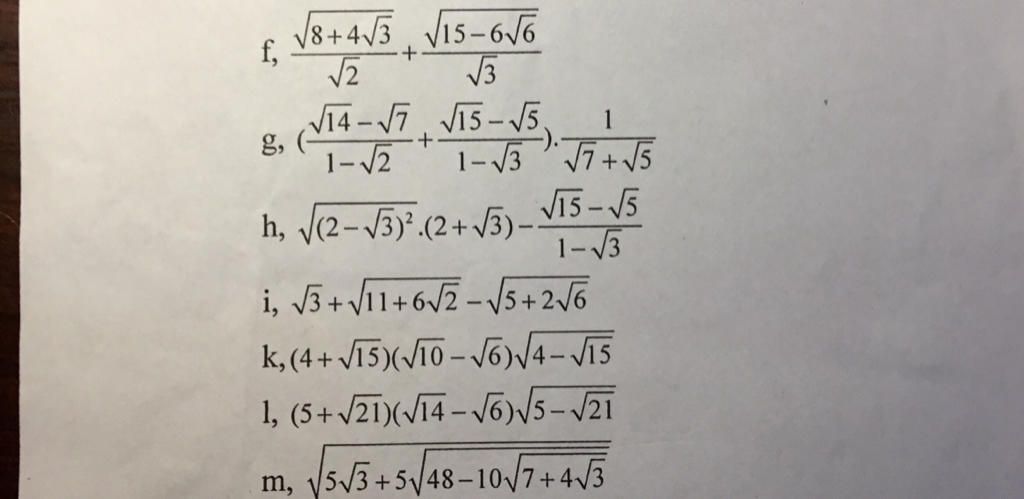 f, \frac{\sqrt{8+4\sqrt{3}}}{\sqrt{2}}+\frac{\sqrt{15-6\sqrt{6}}}{\sqrt{3}}
g, (\frac{\sqrt{14}-\sqrt{7}}{1-\sqrt{2}}+\frac{\sqrt{15}-\sqrt{5}}{1-\sqrt{3}}).\frac{1}{\sqrt{7}+\sqrt{5}}
h, \sqrt{(2-\sqrt{3})^2}.(2+\sqrt{3})-\frac{\sqrt{15}-\sqrt{5}}{1-\sqrt{3}}
i, \sqrt{3}+\sqrt{11+6\sqrt{2}}-\sqrt{5+2\sqrt{6}}
k, (4+\sqrt{15})(\sqrt{10}-\sqrt{6})\sqrt{4-\sqrt{15}}
l, (5+\sqrt{21})(\sqrt{14}-\sqrt{6})\sqrt{5-\sqrt{21}}
m, \sqrt{5\sqrt{3}+5\sqrt{48-10\sqrt{7+4\sqrt{3}}}}